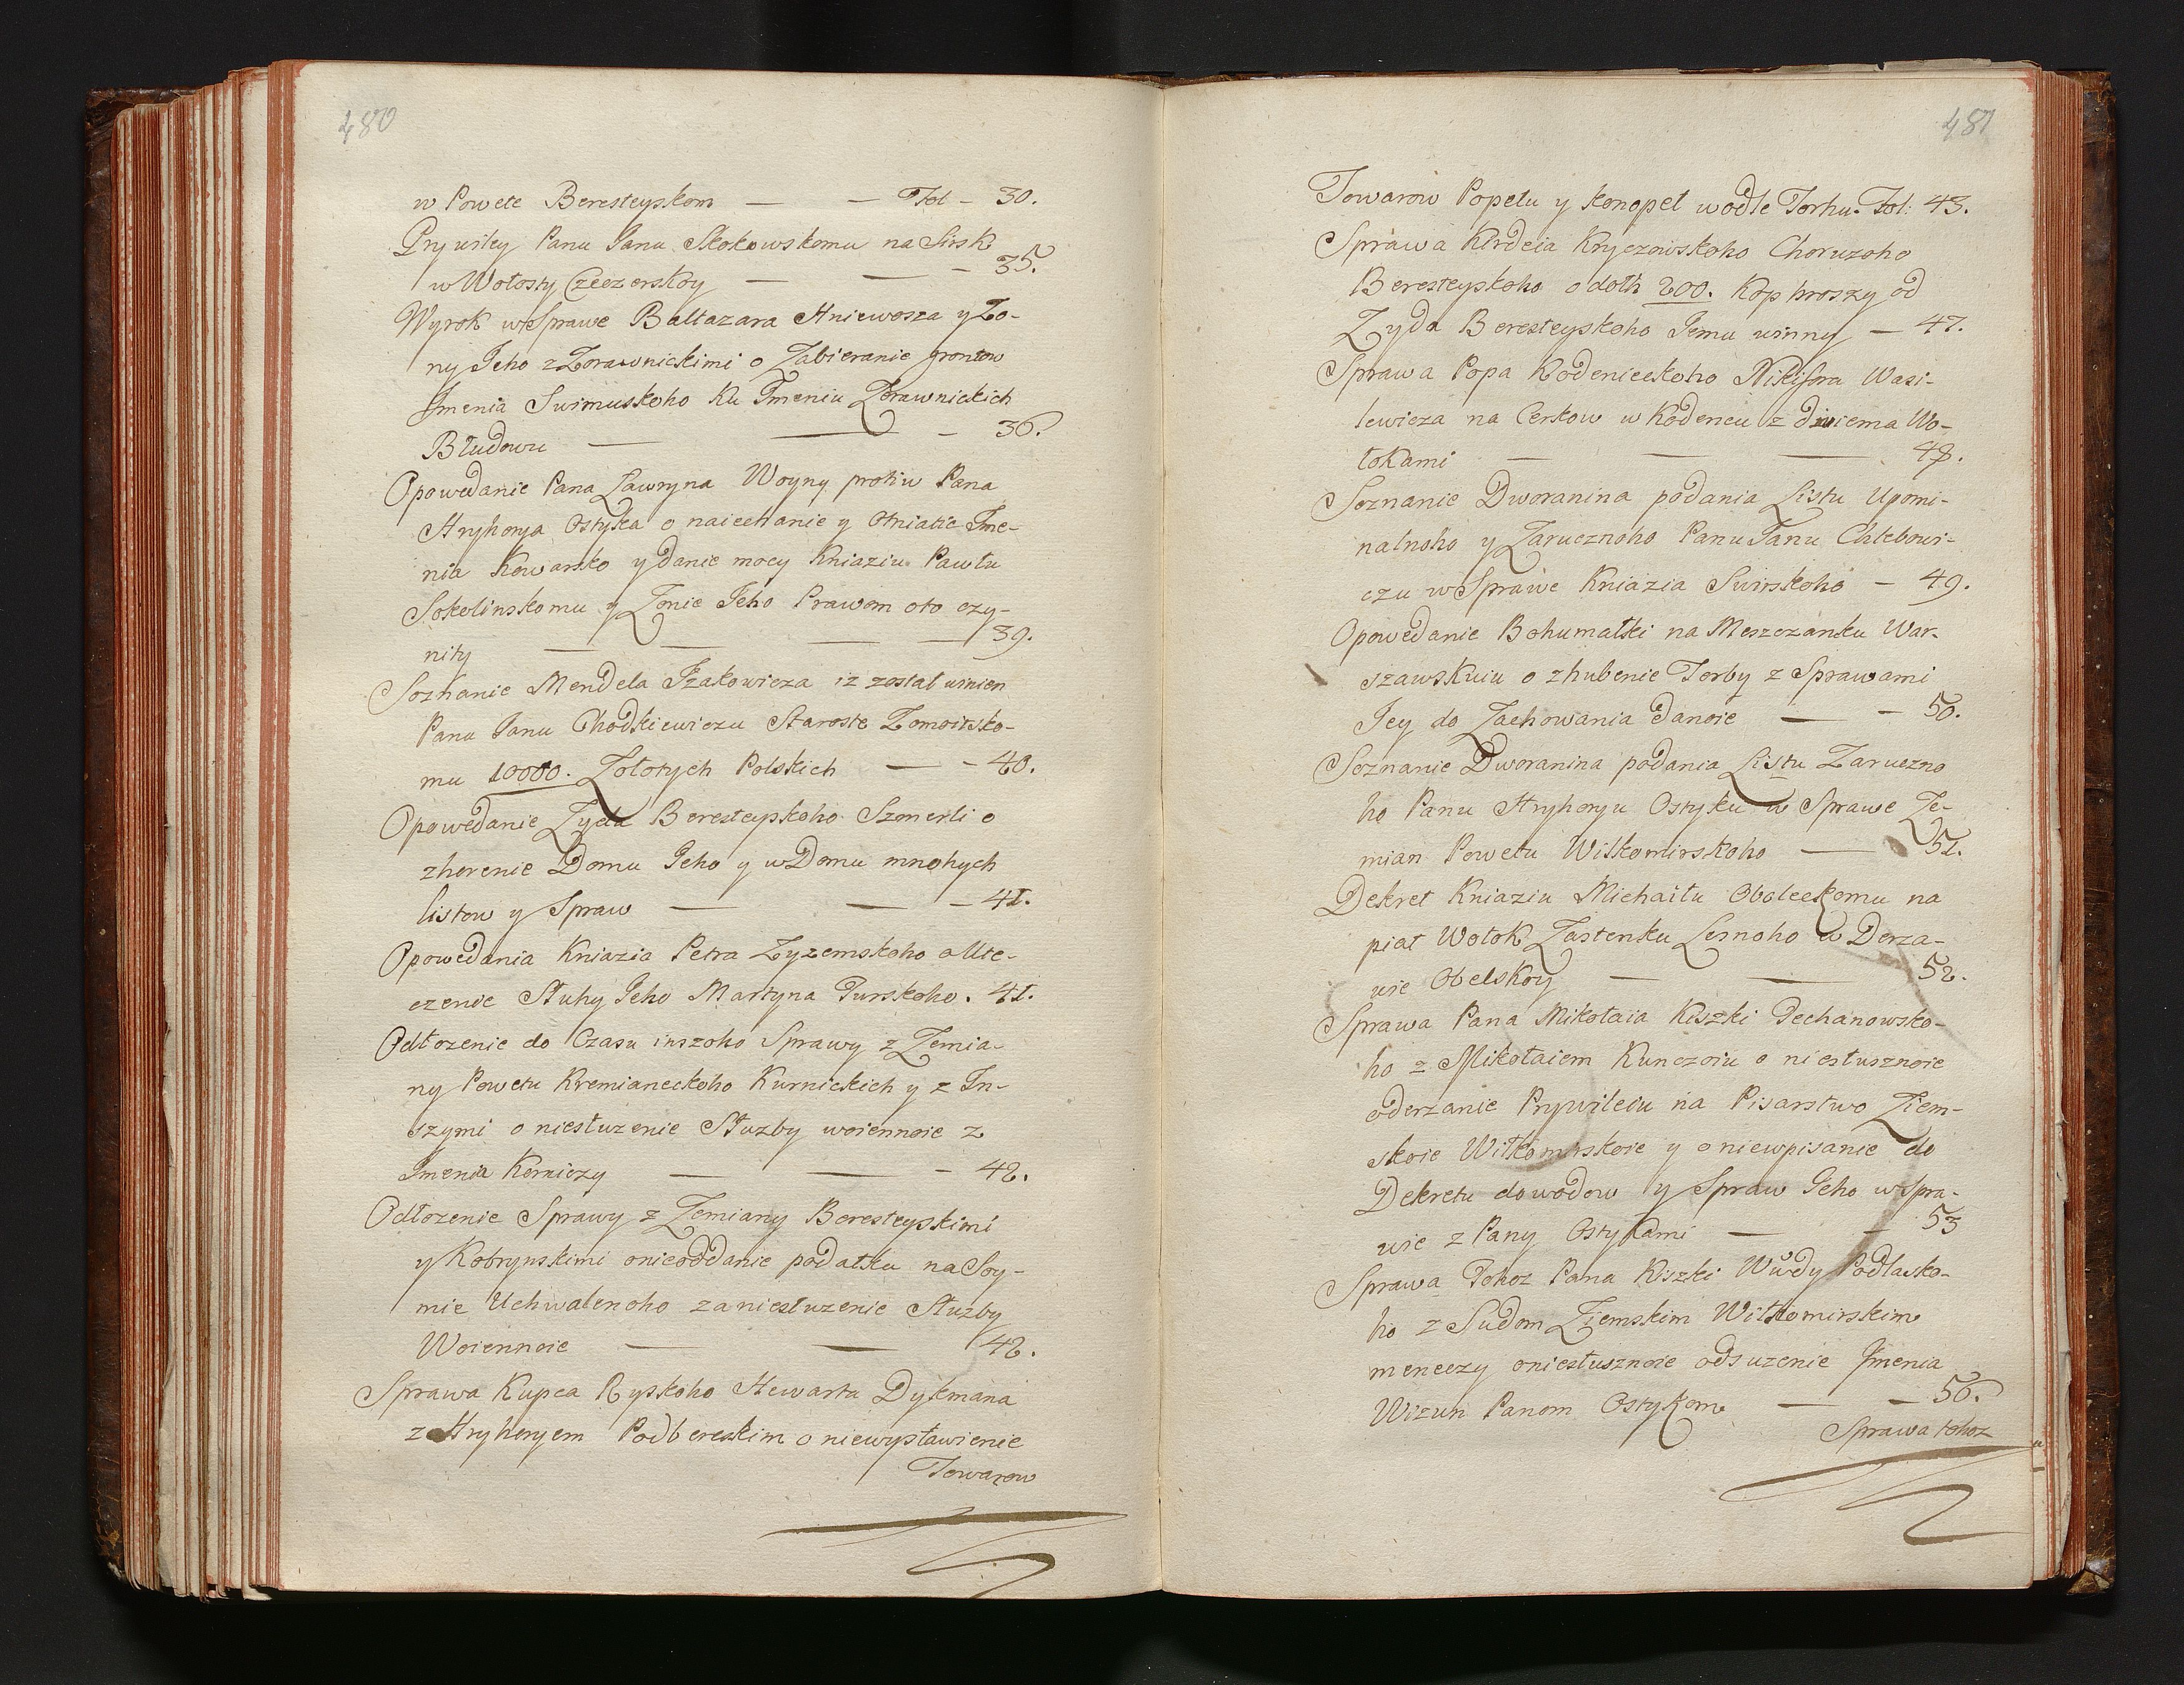 480
w Powete Beresteyskom — — Fol — 30.
Prywiley Panu Janu Skokowskomu na Sirsk
w Wołosty Czeczerskoy — — — 35.
Wyrok w Sprawe Baltazara Hniewosza y Żo-
ny Jeho z Zorawnickimi o Zabieranie grontow
Jmenia Swimuskoho ku Jmeniu Zorawnickich
Błudowu — — — 36.
Opowedanie Pana Ławryna Woyny protiw Pana
Hryhorya Ostyka o naiechanie y Otniatie Jme-
nia Kowarsko y danie mocy Kniaziu Pawłu
Sokolinskomu y Żonie Jeho Prawom oto czy-
nity — — — 39.
Soznanie Mendela Jzakowicza iz zostal winien
Panu Janu Chodkiewiczu Staroste Zomoitsko-
mu 10000. Zołotych Polskich — — 40.
Opowedanie Żyda Beresteyskoho Szmerli o
zhorenie Domu Jeho y w Domu mnohych
listow y Spraw — — — 41.
Opowedania Kniazia Petra Zyżemskoho o Ute-
czenie Słuhy Jeho Martyna Turskoho. 41.
Odłozenie do Czasu inszoho Sprawy z Zemia-
ny Powetu Kremianeckoho Kurnickich y z Jn-
szymi o niesłuzenie Słuzby woiennoie z
Jmenia Korniczy — — — 42.
Odłozenie Sprawy z Zemiany Beresteyskimi
y Kobrynskimi o nieoddanie podatku na Soy-
mie Uchwalenoho za niesłuzenie Słuzby
Woiennoie — — 42.
Sprawa Kupca Ryskoho Hewarta Dykmana
z Hryhoryem Podbereskim o niewystawienie
Towarow
481
Towarow Popełu y Konopel wodle Torhu. Fol: 43.
Sprawa Kirdeia Kryczowskoho Choruzoho
Beresteyskoho o dolh 200. Kop hroszy od
Zyda Beresteyskoho Jemu winny — 47.
Sprawa Popa Kodenieckoho Nikifora Wasi-
lewicza na Cerkow w Kodencu z dwiema Wo-
łokami — — — 48.
Soznanie Dworanina podania Listu Upomi-
nalnoho y Zarucznoho Panu Janu Chlebowi-
czu w Sprawe Kniazia Swirskoho — 49.
Opowedanie Bohumatki na Meszczanku War-
szawskuiu o zhubenie Torby z Sprawami
Jey do Zachowania danoie — — 50.
Soznanie Dworanina podania Listu Zaruczno
ho Panu Hryhoryu Ostyku w Sprawe Ze-
mian Powetu Wilkomirskoho — 51.
Dekret Kniaziu Michaiłu Oboleckomu na
piat Wołok Zastenku Lesnoho w Derza-
wie Obelskoy — — 52.
Sprawa Pana Mikołaia Kiszki Techanowsko-
ho z Mikołaiem Kunczoiu o niesłusznoie
oderzanie Prywileiu na Pisarstwo Ziem-
skoie Wiłkomirskoie y o niewpisanie do
Dekretu dowodow y Spraw Jeho w Spra-
wie z Pany Ostykami — — 53
Sprawa Tohoz Pana Kiszki Wwdy Podlasko-
ho z Sudom Ziemskim Wiłkomirskim
meneczy o niesłusznoie odsuzenie Jmenia
Wizun Panom Ostykom — — 56.
Sprawa tohoz